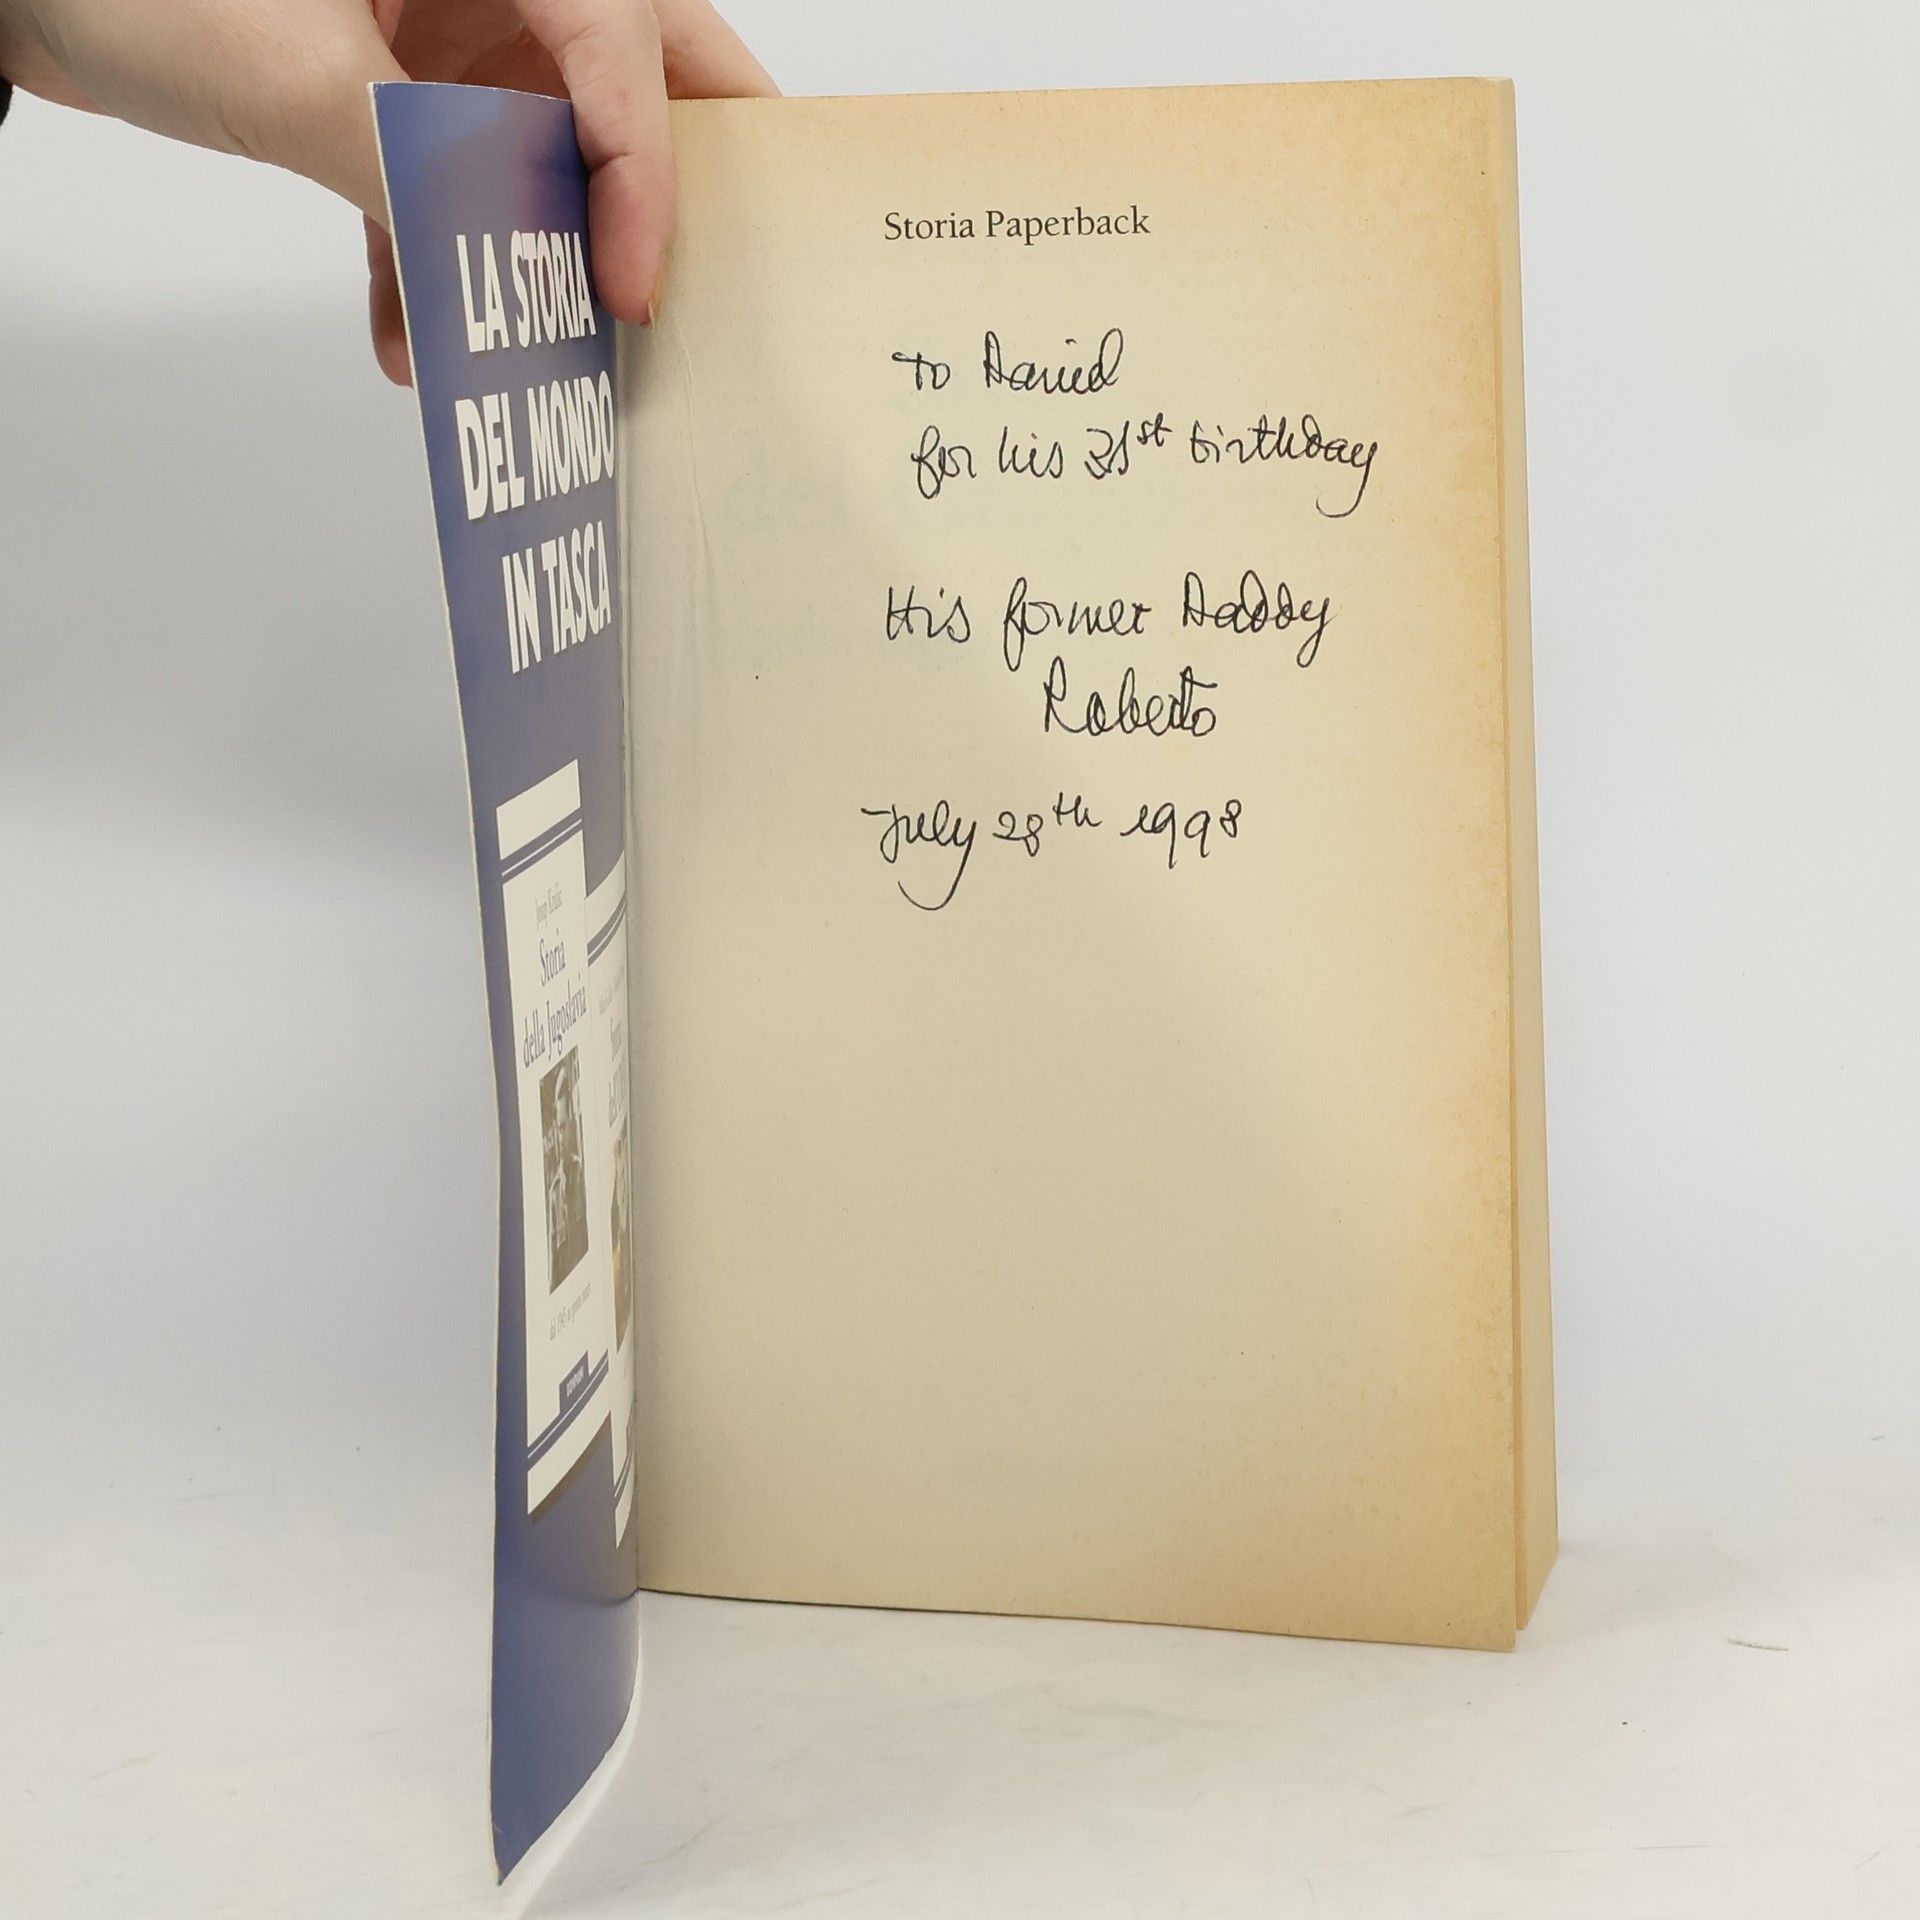 LA STORIA
DEL MONDO
IN TASCA
Storia
della Jugoslavia
Storia Paperback
To Daniel
for his 21st birthday
His former Daddy
Roberto
July 28th 1998